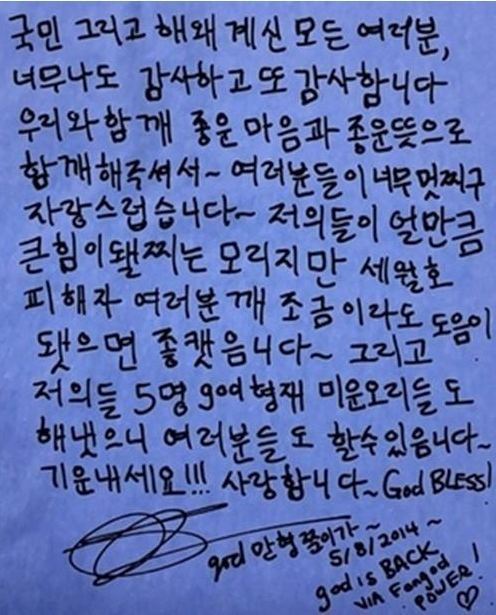 국민 그리고 해왜 계신 모든 여러분,
너무나도 감사하고 또 감사함니다
우리와 함깨 좋운 마음과 종운뜻으로
함깨해주셔서~ 여러분들이 너무 멋찌구
자랑스럽습니다~ 저의들이 얼만큼
큰힘이됄찌는 모리지만 세월호
피해자 여러분깨 조금이라도 도음이
됏으면 좋캣음니다~ 그리고
저의들 5명 god형재 미운오리들도
해냇으니 여러분들도 할수있음니다~
기운내세요!!! 사랑함니다~ God BLESS!
god 만형쭌이가~
5/8/2014~
god is BACK
VIA Fangod
POWER!